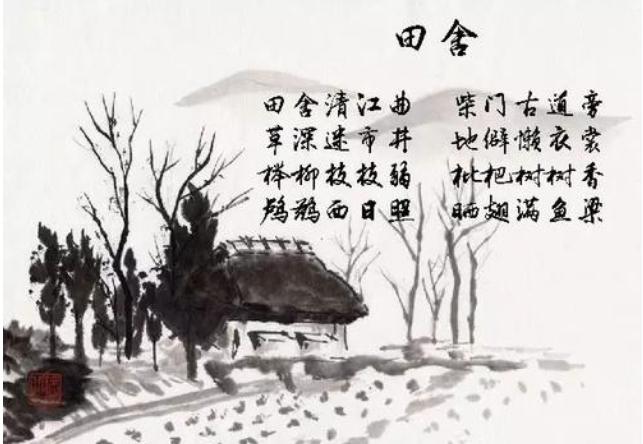 田舍
田舍清江曲 柴门古道旁
草深迷市井 地僻懒衣裳
榉柳枝枝弱 枇杷树树香
鸬鹚西日照 晒翅满鱼梁